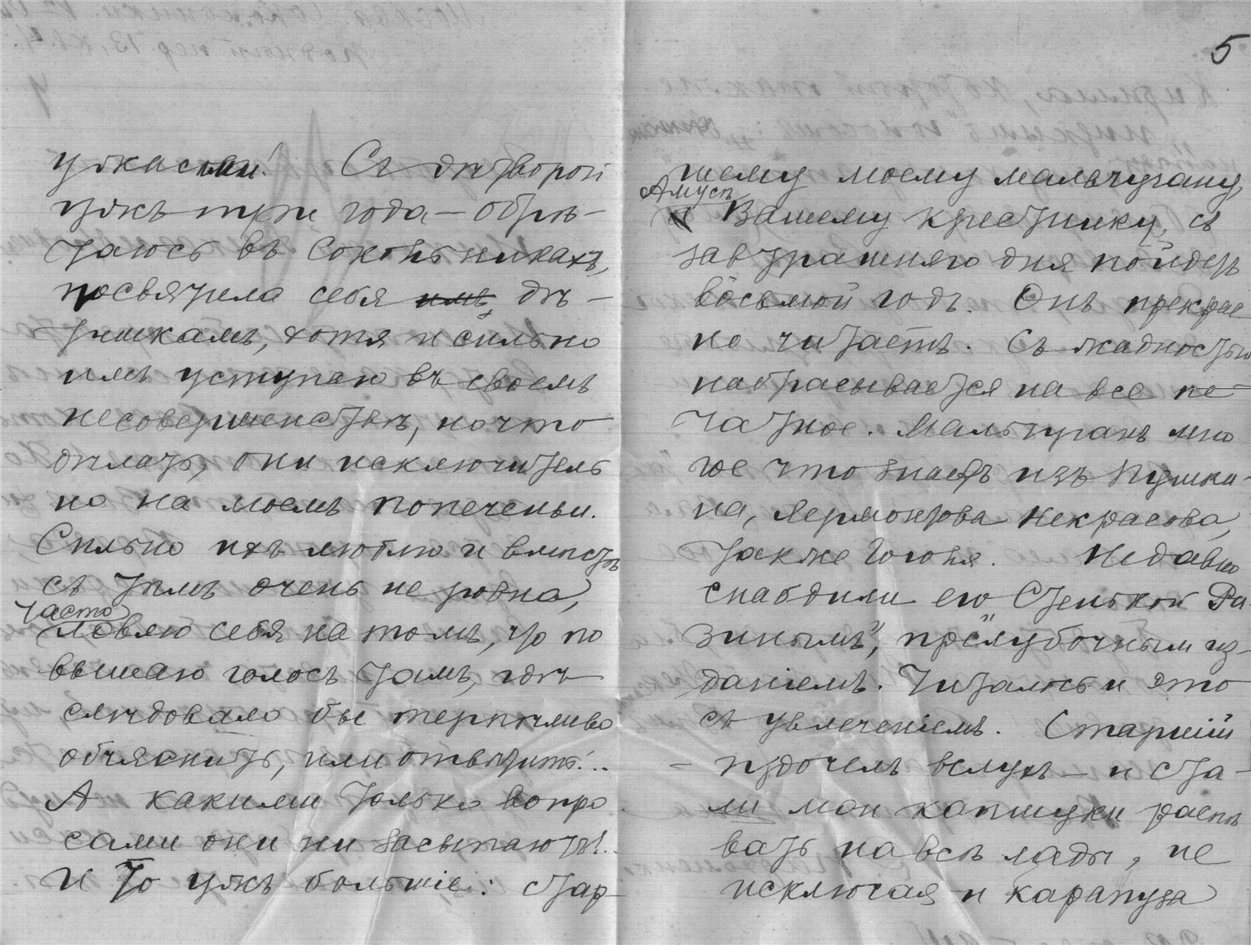 5
ужасами! Съ дѣтворой
ужъ три года — обрѣ-
таюсь въ Сокольникахъ,
посвятила себя имъ дѣ-
тишкамъ, хотя и сильно
имъ уступаю въ своемъ
несовершенствѣ, но что
дѣлать, они исключитель
но на моемъ попеченьи.
Сильно ихъ люблю и вмѣстѣ
съ тѣмъ очень не ровна,
часто
ловлю себя на томъ, что по
вышаю голосъ тамъ, гдѣ
слѣдовало бы терпѣливо
объяснить, или отвѣтить...
А какими только вопро
сами они ни засыпаютъ!..
И то ужъ большіе: стар
шему моему мальчугану,
Вашему крестнику, съ
завтрашняго дня пойдетъ
восьмой годъ. Онъ прекрас
но читаетъ. Съ жадностью
набрасывается на все пе
чатное. Мальчуганъ мно
гое что знаетъ изъ Пушки-
на, Лермонтова Некрасова,
также Гоголя. Недавно
снабдили его "Стенькой Ра
зинымъ", прелубочнымъ из-
даніемъ. Читалось и это
съ увлеченіемъ. Старшій
- прочелъ вслухъ — и ста-
ли мои капшуки распѣ
вать на всѣ лады, не
исключая и карапуза